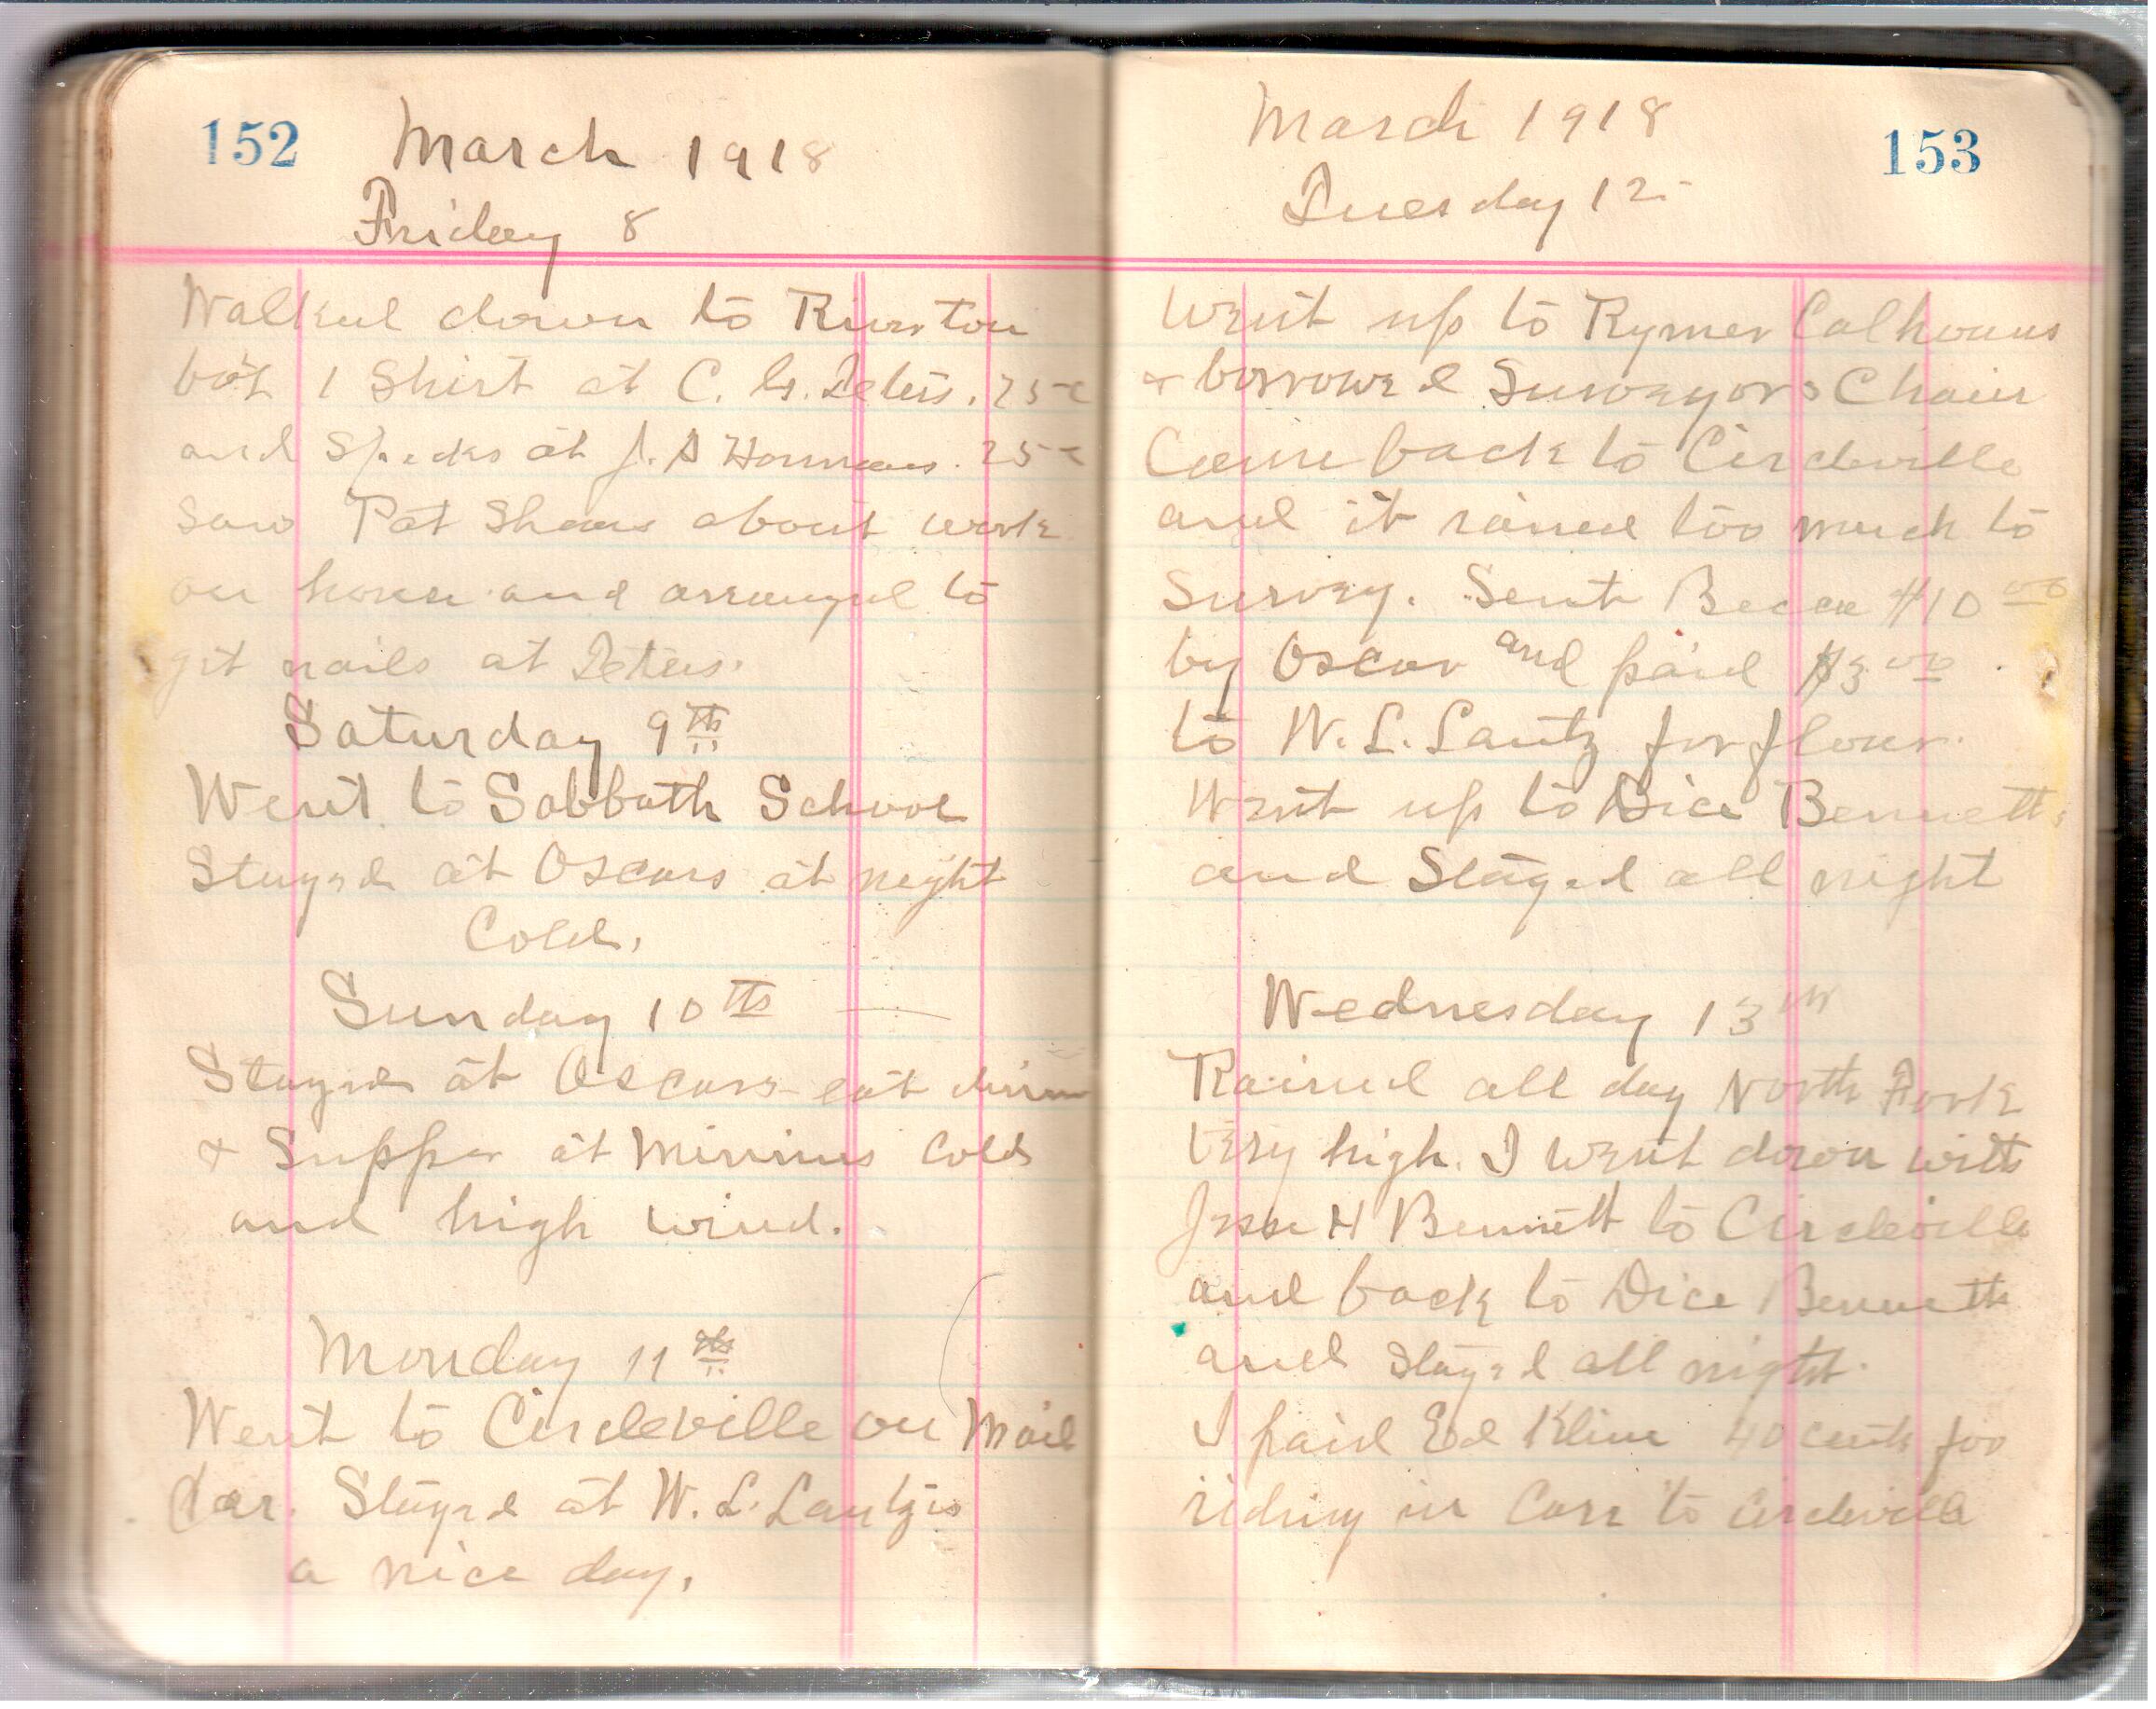 152
March 1918
Friday 8
Walked down to Riverton
bot 1 Shirt at C. G. Teters. 75c
and Specks at J. A 25c
Saw Pat about work
on house and arranged to
git nails at Teters.
Saturday 9th
Went to Sabbath School
Stayed at Oscars at night
Cold.
Sunday 10th —
Stayed at Oscars eat
& Supper at Minnies Cold
and high wind.
Monday 11th
Went to Circleville on Mail
Car. Stayed at W. L. Lantz's
a nice day.
153
March 1918
Tuesday 12
Went up to Rymer Calhouns
+ borrowed Surveyors Chain
Came back to Circleville
and it rained too much to
Survey. Sent $10 00
by Oscar and paid $3 00
to W. L. Lantz for flour.
Went up to Dice Bennetts
and Stayed all night
Wednesday 13th
Rained all day North Fork
very high. I went down with
Jesse H Bennett to Circleville
and back to Dice Bennetts
and stayed all night.
I paid Ed Kline 40 cents for
riding in Carr to Circleville